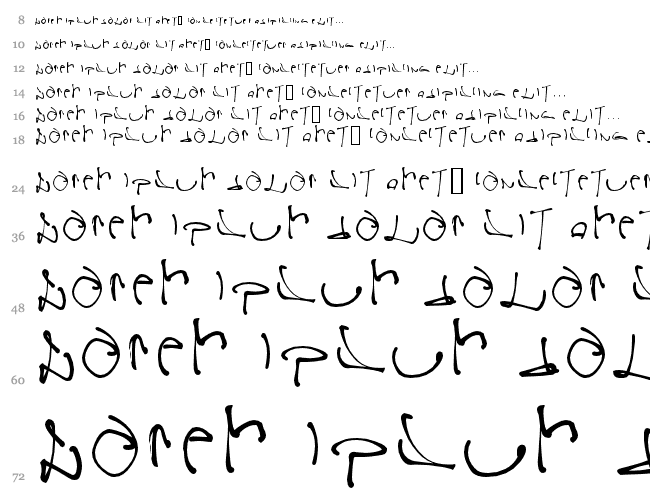 8 Lorem ipsum dolor sit amet▯ consectetuer adipiscing elit...
10 Lorem ipsum dolor sit amet▯ consectetuer adipiscing elit...
12 Lorem ipsum dolor sit amet▯ consectetuer adipiscing elit...
14 Lorem ipsum dolor sit amet▯ consectetuer adipiscing elit...
16 Lorem ipsum dolor sit amet▯ consectetuer adipiscing elit...
18 Lorem ipsum dolor sit amet▯ consectetuer adipiscing e
24 Lorem ipsum dolor sit amet▯ consectetuer
36 Lorem ipsum dolor sit amet
48 Lorem ipsum dolor
60 Lorem ipsum dol
72 Lorem ipsum